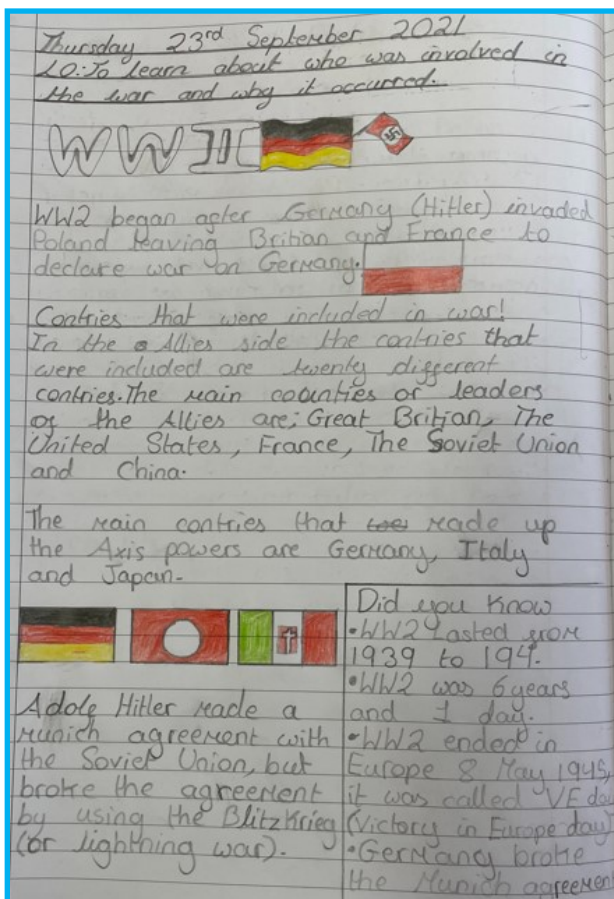 Thursday 23rd September 2021
LO:To learn about who was involved in
the war and why it occurred.
WWII
WW2 began after Germany (Hitler) invaded
Poland leaving Britian and France to
declare war on Germany.
Contries that were included in war!
In the Allies side the contries that
were included are twenty different
contries. The main counties or leaders
of the Allies are; Great Britian, The
United States, France, The Soviet Union
and China.
The main contries that made up
the Axis powers are Germany, Italy
and Japan.
Adolf Hitler made a
Munich agreement with
the Soviet Union, but
broke the agreement
by using the Blitzkrieg
(or lightning war).
Did you know
•WW2 Lasted from
1939 to 194.
•WW2 was 6 years
and 1 day.
•WW2 ended in
Europe 8 May 1945,
it was called VE day
(Victory in Europe day)
•Germany broke
the Munich agreement